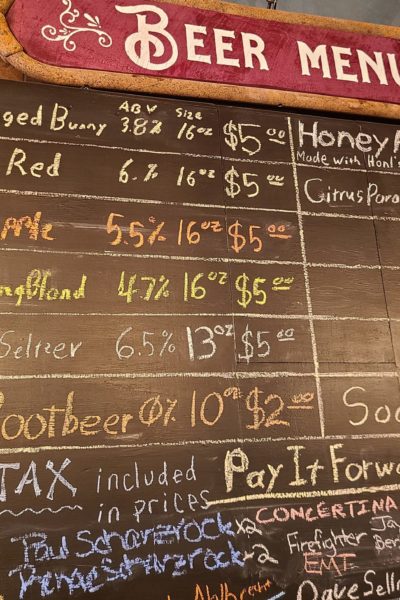 BEER MENU
ABV Size
ged Bunny 3.8% 16oz $5.00
Red 6.% 16oz $5.00
5.5% 16oz $5.00
ngBlond 4.7% 16oz $5.00
Seltzer 6.5% 13oz $5.00
ootbeer 0% 10oz $2.00
Honey
Made with Honl's
Citrus Para
Soo
TAX included
in prices
Pay It Forwa
Paul Schanzrock x2
Schanzrock x2
CONCERTINA
Firefighter
EMT
Dave Selln